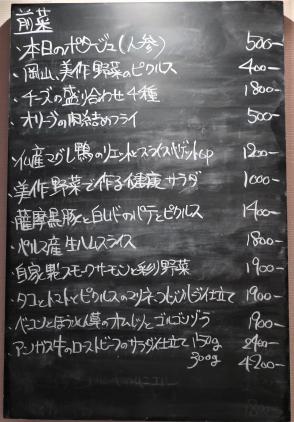 前菜
・本日のポタージュ(人参) 500-
・岡山、美作野菜のピクルス 400-
・チーズの盛り合わせ4種 1800-
・オリーブの肉詰めフライ 500-
・仏産マグレ鴨のリエットとスライスバゲット 1200-
・美作野菜で作る健康サラダ 1000-
・薩摩黒豚と白レバーのパテとピクルス 1400-
・パルマ産生ハムスライス 1800-
・自家製スモークサーモンと彩り野菜 1900-
・タコとトマトとピクルスのマリネ 仕立て 1900-
・ベーコンとほうれん草のオムレツとゴルゴンゾーラ 1900-
・アンガス牛のローストビーフのサラダ仕立て 150g 2400-
300g 4200-